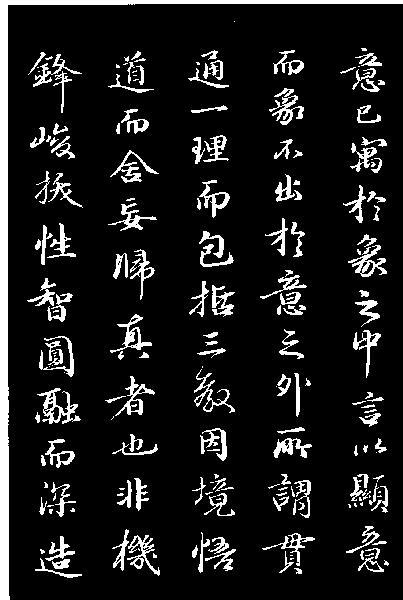 意已寓於象之中言以顯意
而象不出於意之外所謂貫
通一理而包括三教因境悟
道而舍妄歸真者也非機
鋒峻捩性智圓融而深造